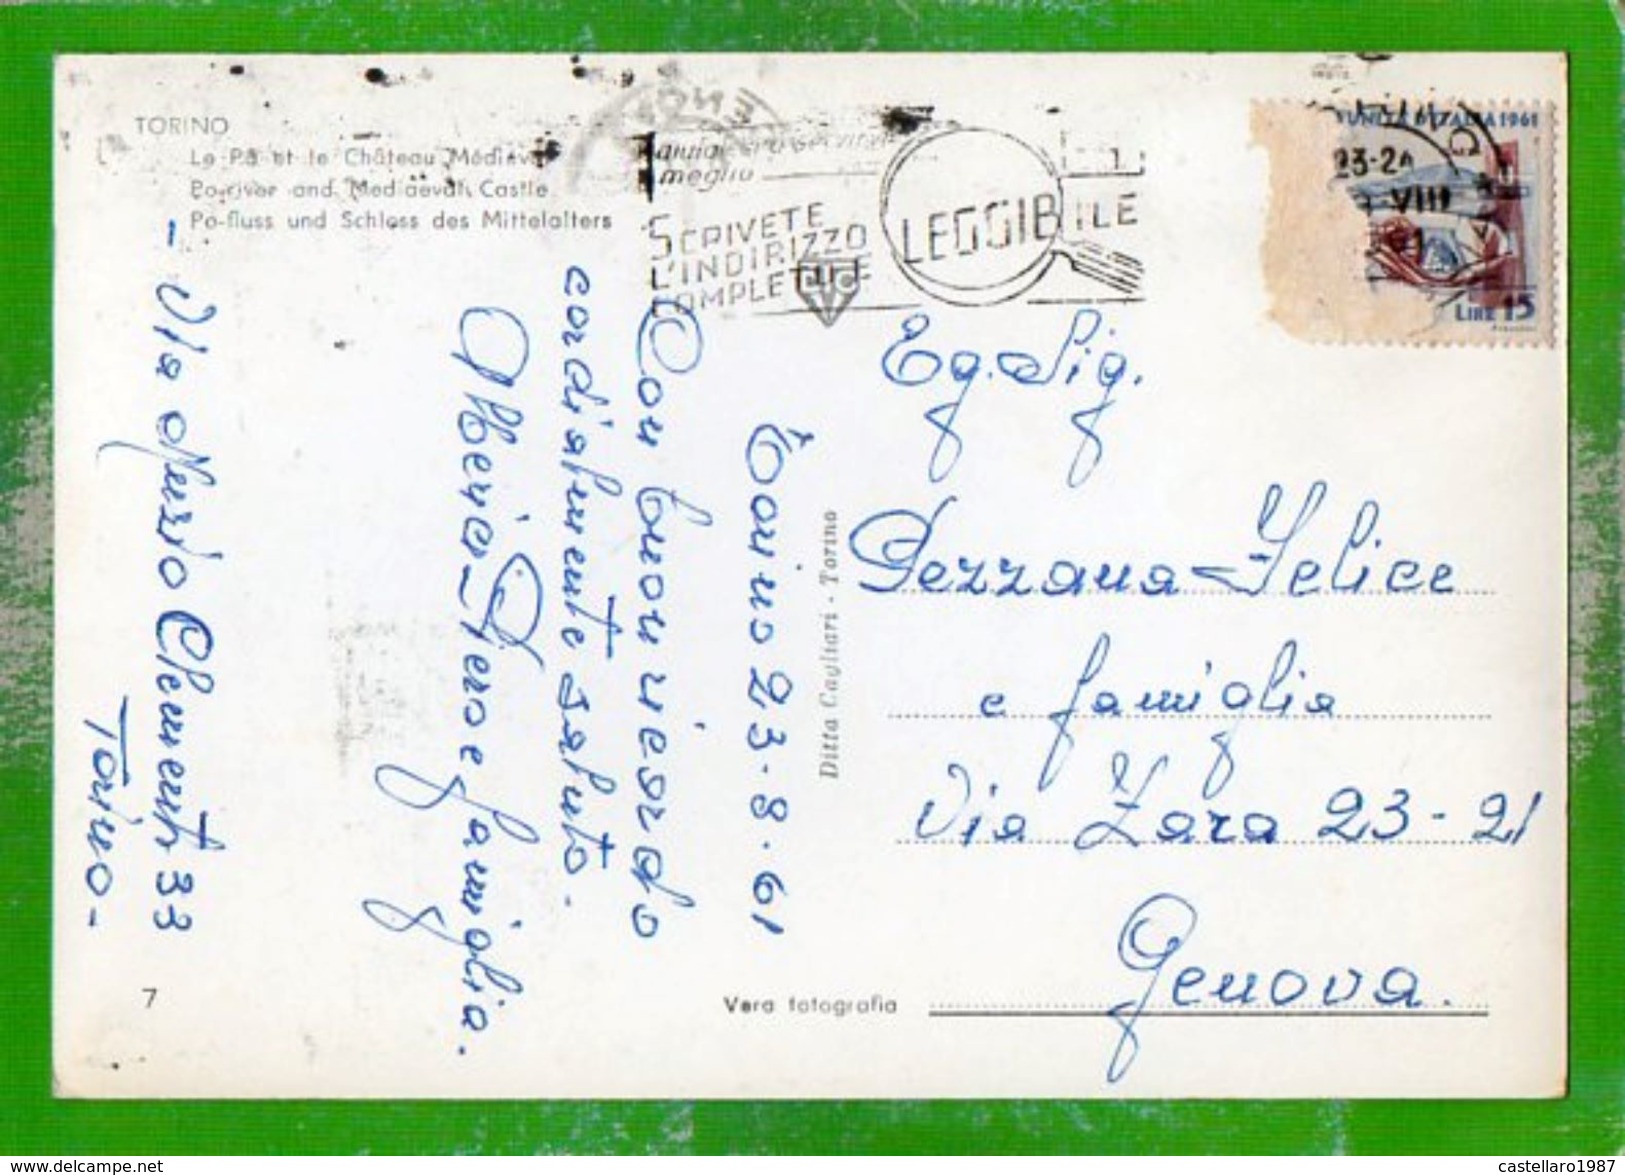 TORINO
Le Pô et le Château Médiéval
Po-river and Mediaeval Castle
Po-fluss und Schloss des Mittelalters
meglio
SCRIVETE
L'INDIRIZZO
COMPLETO E
LEGGIBILE
UNITÀ D'ITALIA 1961
23-24
VIII
LIRE 15
Torino 23.8.61
Con buon ricordo
cordialmente saluto.
Alberia Piero e famiglia.
- Via Nunzio Clementi 33
Torino -
Ditta Cagliari - Torino
Eg. Sig.
Pezzana Felice
e famiglia
Via Zara 23-21
Genova.
7
Vera fotografia
castellaro1987
www.delcampe.net